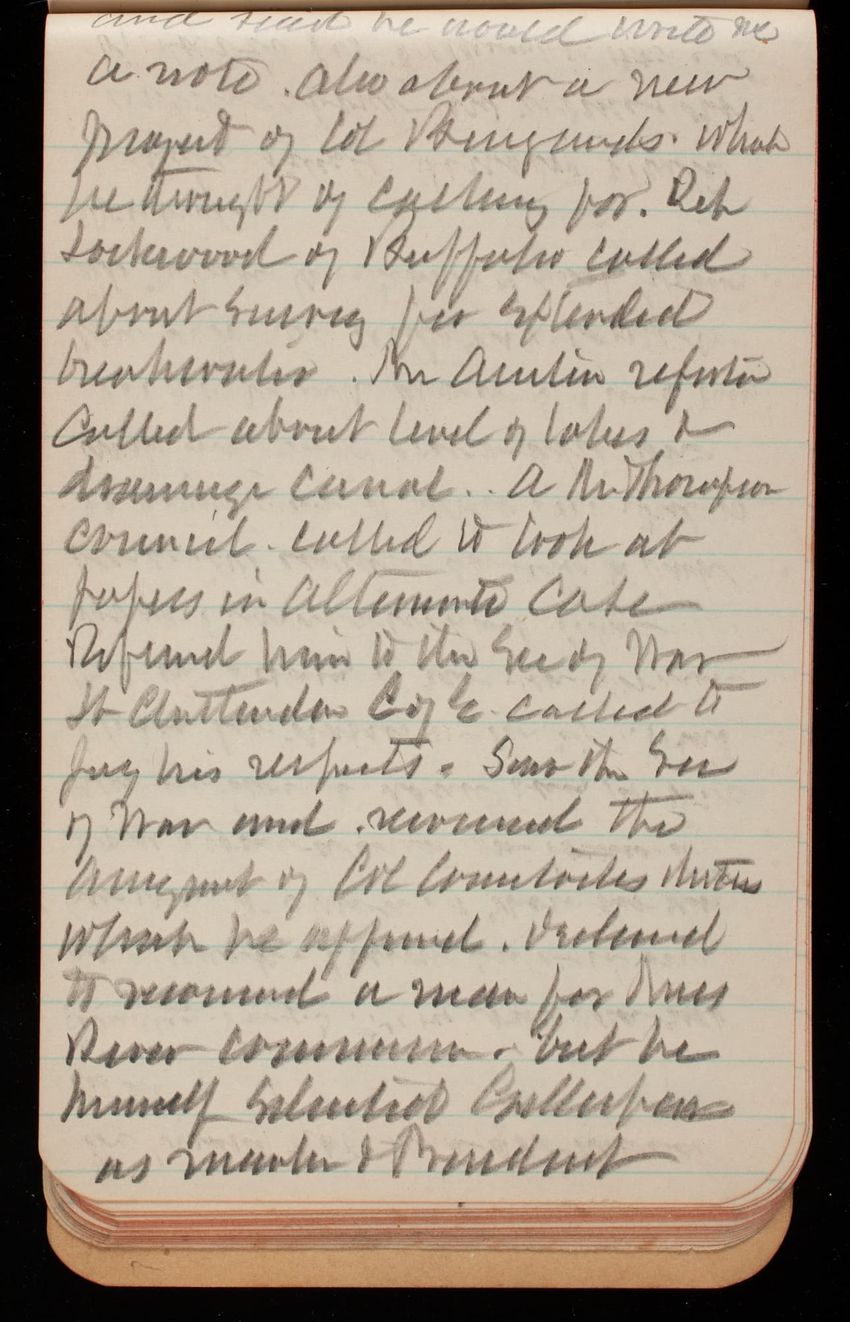 and said he would write me
a note. Also about a new
project of Col Benyaurds. which
he thought of calling for. Rep
Lockwood of Buffalo called
about Survey for extended
breakwater. Mr Austin reporter
called about level of lakes &
drainage canal.. A Mr Thompson
council. called to look at
papers in Altemonte Case
Referred him to the Sec of War
Lt Chittenden C of E. called to
pay his respects. Saw the Sec
of War and. recomend the
assignmt of Col Comstocks duties
which he approved. Declined
to recomend a man for Miss
River commission. but he
himself Selected Gillespie
as member & President